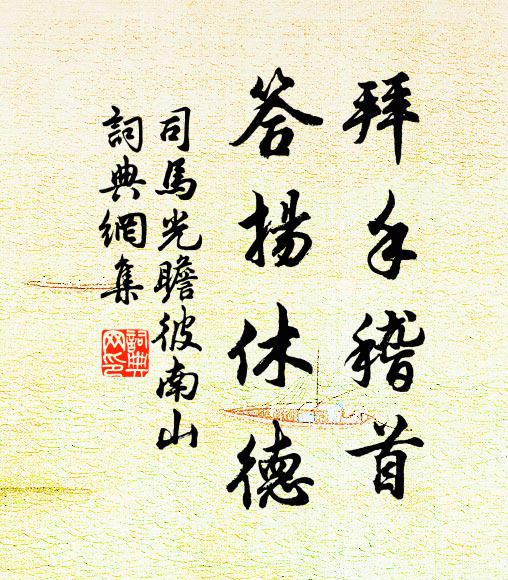 拜手稽首
答揚休德
司馬光瞻彼南山
詞典網集
詞典网印